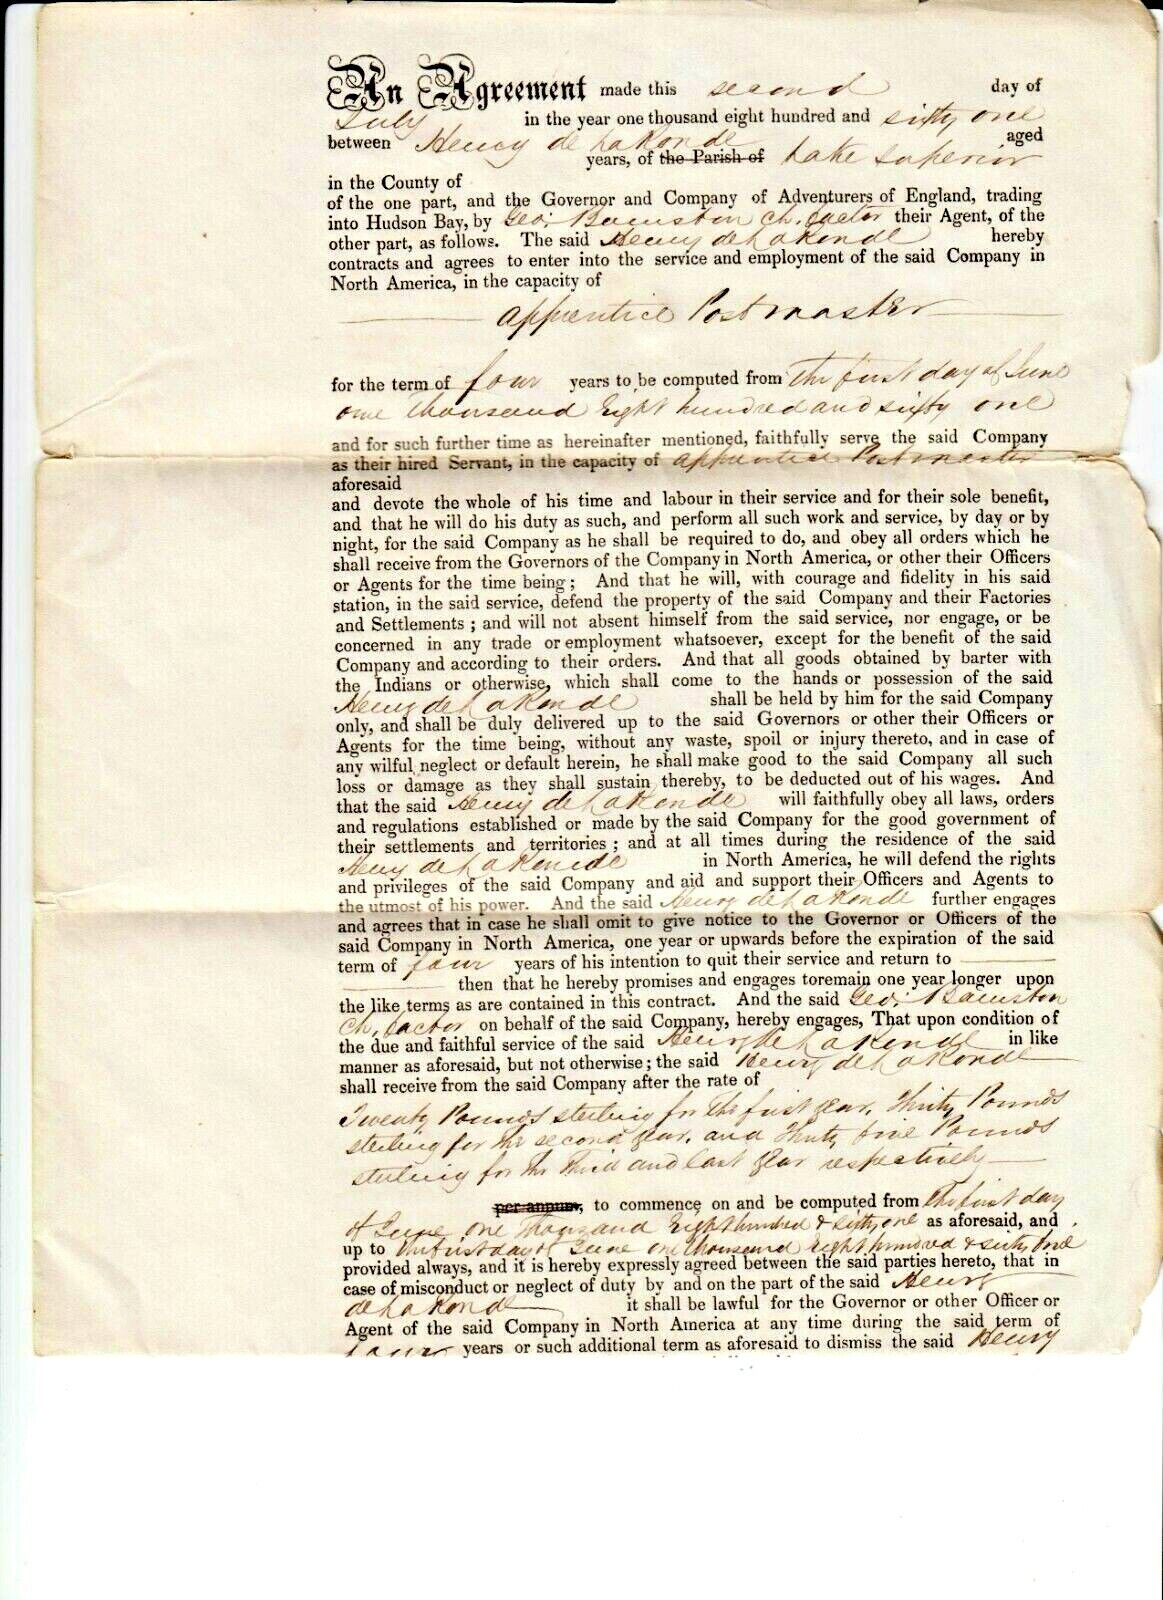 An Agreement made this second day of
July in the year one thousand eight hundred and sixty one
between Henry de LaRonde aged
years, of the Parish of Lake Superior
in the County of
of the one part, and the Governor and Company of Adventurers of England, trading
into Hudson Bay, by Geo: Barnston Ch. factor their Agent, of the
other part, as follows. The said Henry de LaRonde hereby
contracts and agrees to enter into the service and employment of the said Company in
North America, in the capacity of
apprentice Postmaster
for the term of four years to be computed from the first day of June
one thousand Eight hundred and sixty one
and for such further time as hereinafter mentioned, faithfully serve the said Company
as their hired Servant, in the capacity of apprentice Postmaster
aforesaid
and devote the whole of his time and labour in their service and for their sole benefit,
and that he will do his duty as such, and perform all such work and service, by day or by
night, for the said Company as he shall be required to do, and obey all orders which he
shall receive from the Governors of the Company in North America, or other their Officers
or Agents for the time being; And that he will, with courage and fidelity in his said
station, in the said service, defend the property of the said Company and their Factories
and Settlements; and will not absent himself from the said service, nor engage, or be
concerned in any trade or employment whatsoever, except for the benefit of the said
Company and according to their orders. And that all goods obtained by barter with
the Indians or otherwise, which shall come to the hands or possession of the said
Henry de LaRonde shall be held by him for the said Company
only, and shall be duly delivered up to the said Governors or other their Officers or
Agents for the time being, without any waste, spoil or injury thereto, and in case of
any wilful neglect or default herein, he shall make good to the said Company all such
loss or damage as they shall sustain thereby, to be deducted out of his wages. And
that the said Henry de LaRonde will faithfully obey all laws, orders
and regulations established or made by the said Company for the good government of
their settlements and territories; and at all times during the residence of the said
Henry de LaRonde in North America, he will defend the rights
and privileges of the said Company and aid and support their Officers and Agents to
the utmost of his power. And the said Henry de LaRonde further engages
and agrees that in case he shall omit to give notice to the Governor or Officers of the
said Company in North America, one year or upwards before the expiration of the said
term of four years of his intention to quit their service and return to
then that he hereby promises and engages toremain one year longer upon
the like terms as are contained in this contract. And the said Geo: Barnston
Ch. factor on behalf of the said Company, hereby engages, That upon condition of
the due and faithful service of the said Henry de LaRonde in like
manner as aforesaid, but not otherwise; the said Henry de LaRonde
shall receive from the said Company after the rate of
Twenty Pounds sterling for the first year, Thirty Pounds
sterling for the second year, and Thirty five Pounds
sterling for the Third and last year respectively
per annum, to commence on and be computed from the first day
of June one Thousand Eight hundred & sixty one as aforesaid, and
up to the first day of June one thousand eight hundred & sixty five
provided always, and it is hereby expressly agreed between the said parties hereto, that in
case of misconduct or neglect of duty by and on the part of the said Henry
de LaRonde it shall be lawful for the Governor or other Officer or
Agent of the said Company in North America at any time during the said term of
four years or such additional term as aforesaid to dismiss the said Henry